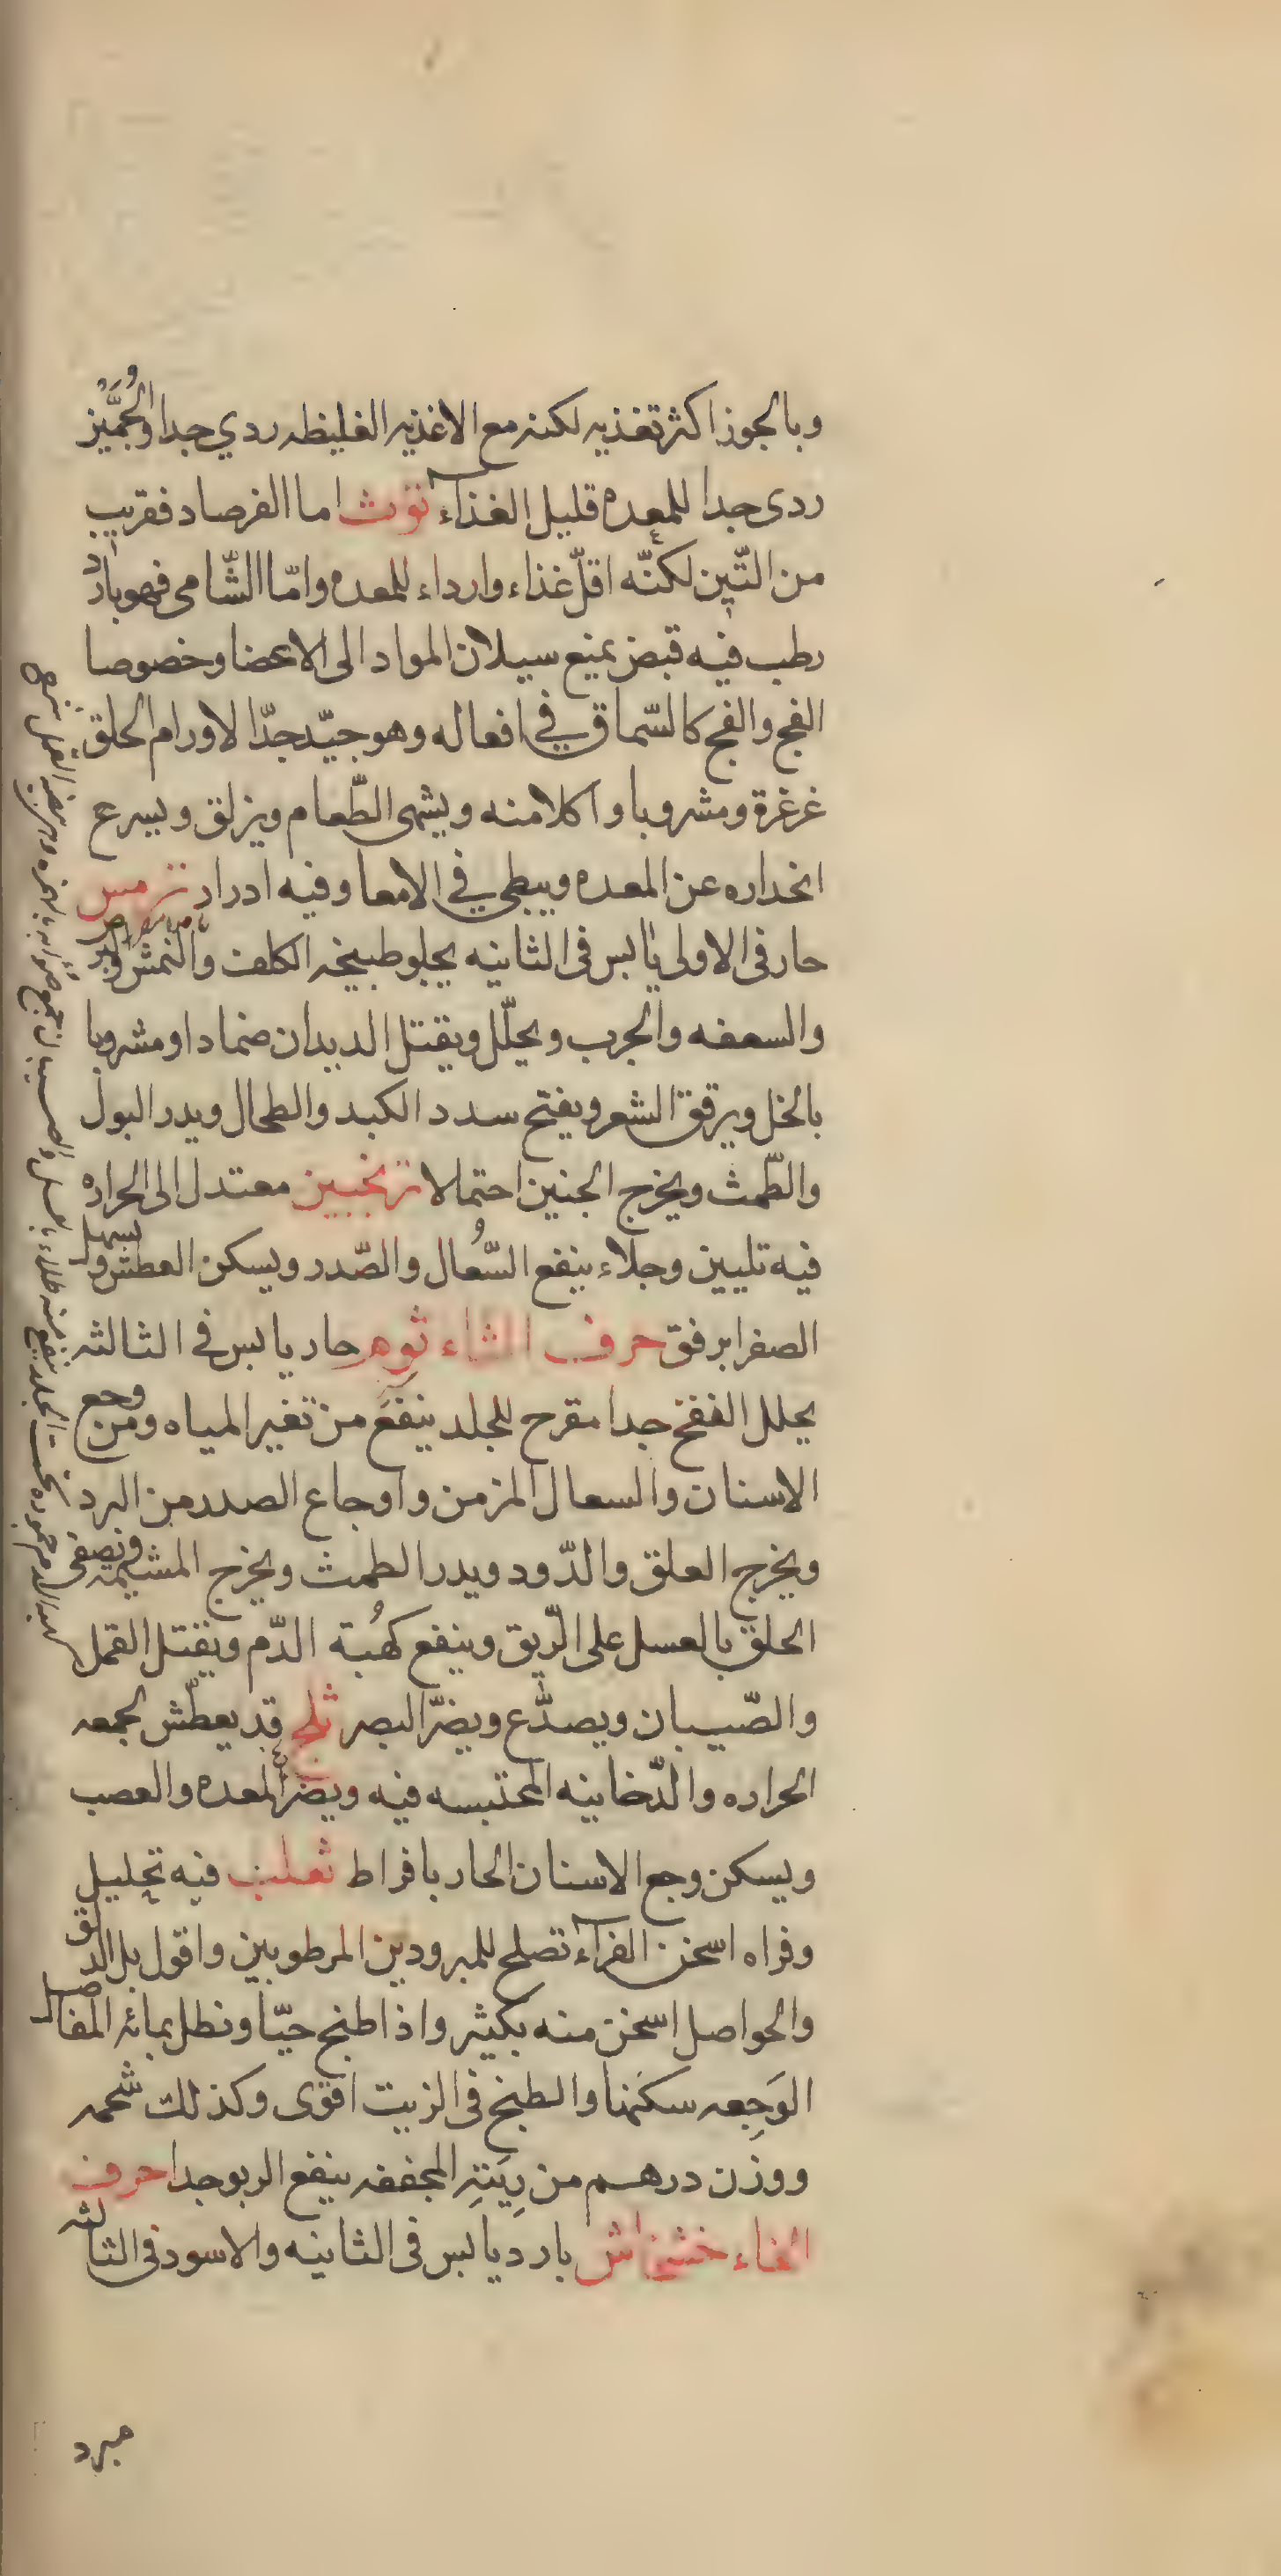 وبالجوز اكثر تغذيه لكنه مع الاغذيه الغليظه ردي جدا والجُمَّيز
ردى جدا للمعده قليل الغذاء توث اما الفرصاد فقريب
من التّين لكنّه اقلّ غذاء وارداء للمعده وامّا الشّامى فهو بارد
رطب فيه قبض يمنع سيلان المواد الى الاعضا وخصوصا
الفج والفج كالسّماق في افعاله وهو جيّد جدّا لاورام الحلق
غرغرة ومشروبا واكلا منه ويشهى الطّعام ويزلق ويسرع
انحداره عن المعده ويبطى في الامعا وفيه ادرار ترمس
حار فى الاولى يابس فى الثانيه يجلو طبيخه الكلف والنمش والبرص
والسعفه والجرب ويحلّل ويقتل الديدان ضمادا او مشروبا
بالخل ويرقق الشعر ويفتح سدد الكبد والطحال ويدر البول
والطّمث ويخرج الجنين احتمالا ترنجبين معتدل الى الحراره
فيه تليين وجلاء ينفع السُّعال والصّدر ويسكن العطش ويسهل
الصفرا برفق حرف الثاء ثوم حار يابس في الثالثه
يحلل النفخ جدا مقرح للجلد ينفع من تغير المياه ومن وجع
الاسنان والسعال المزمن واوجاع الصدر من البرد
ويخرج العلق والدّود ويدر الطمث ويخرج المشيمه ويصفى
الحلق بالعسل على الرّيق وينفع كُهبة الدّم ويقتل القمل
والصّيبان ويصدّع ويضرّ البصر ثلج قد يعطّش لجمعه
الحراره والدّخانيه المحتبسه فيه ويضرّ المعده والعصب
ويسكن وجع الاسنان الحار بافراط ثعلب فيه تحليل
وفراه اسخن الفرآء تصلح للمبرودين المرطوبين واقول بل الدلق
والحواصل اسخن منه بكثير واذا طبخ حيّا ونطل بمائه المفاصل
الوَجِعه سكنها والطبخ فى الزيت اقوى وكذلك شحمه
ووزن درهم من رِيَته المجففه ينفع الربو جدا حرف
الخاء خشخاش بارد يابس فى الثانيه والاسود فى الثالثه
مبرد